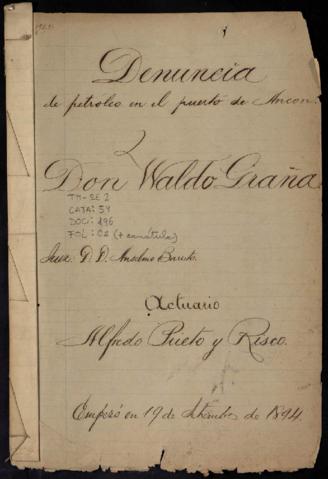 Denuncia
de petroleo en el puerto de Ancon.
Don Waldo Graña
TM-SE 2
CAJA: 54
DOC: 496
FOL: 02 (+ carátula)
Juez D. D. Anselmo Barreto.
Actuario
Alfredo Prieto y Risco.
Empezó en 19 de Setiembre de 1894.